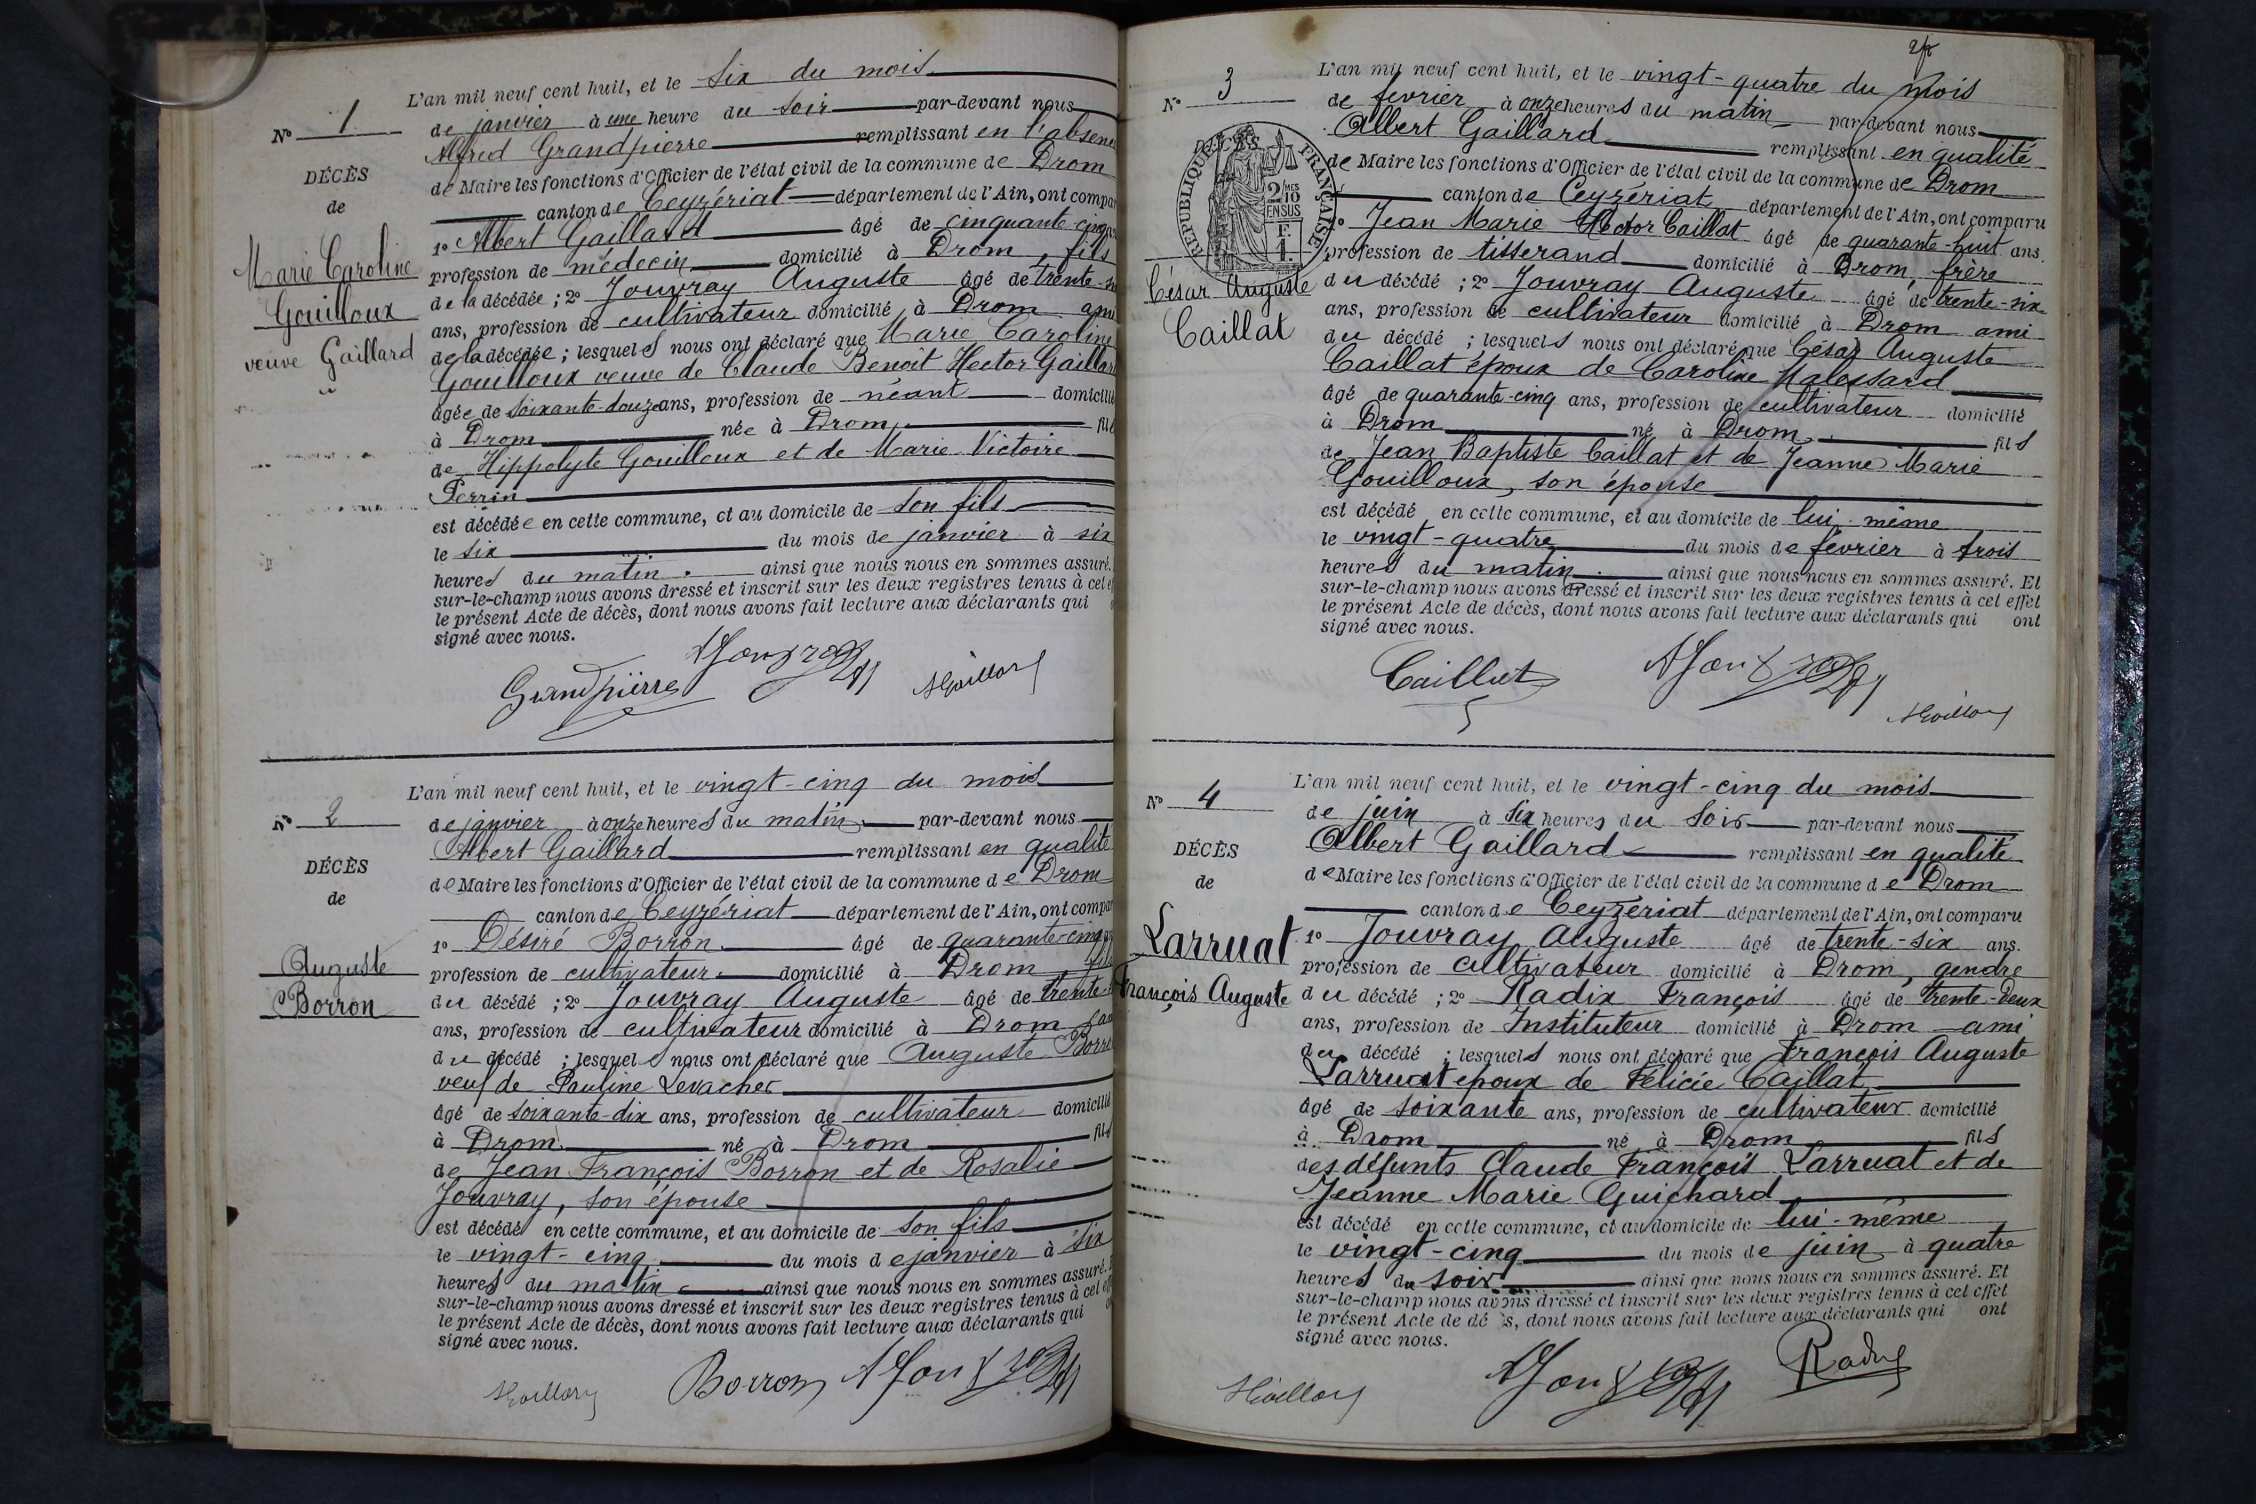 N° 1
DÉCÈS
de
Marie Caroline
Gouilloux
veuve Gaillard
L'an mil neuf cent huit, et le six du mois
de janvier à une heure du soir par-devant nous
Alfred Grandpierre remplissant en l'absence
de Maire les fonctions d'Officier de l'état civil de la commune de Drom
canton de Ceyzériat département de l'Ain, ont compar
1° Albert Gaillard âgé de cinquante-cinq
profession de médecin domicilié à Drom, fils
de la décédée ; 2° Jouvray Auguste âgé de trente-
ans, profession de cultivateur domicilié à Drom ami
de la décédée ; lesquels nous ont déclaré que Marie Caroline
Gouilloux veuve de Claude Benoit Hector Gaillard
âgée de soixante-douze ans, profession de néant domicilié
à Drom née à Drom fille
de Hippolyte Gouilloux et de Marie Victoire
Perrin
est décédée en cette commune, et au domicile de son fils
le six du mois de janvier à six
heures du matin. ainsi que nous nous en sommes assuré.
sur-le-champ nous avons dressé et inscrit sur les deux registres tenus à cet ef
le présent Acte de décès, dont nous avons fait lecture aux déclarants qui
signé avec nous.
Grandpierre AJouvray AGaillard
N° 2
DÉCÈS
de
Auguste
Borron
L'an mil neuf cent huit, et le vingt-cinq du mois
de janvier à onze heures du matin par-devant nous
Albert Gaillard remplissant en qualité
de Maire les fonctions d'Officier de l'état civil de la commune de Drom
canton de Ceyzériat département de l'Ain, ont compar
1° Désiré Borron âgé de quarante-cinq
profession de cultivateur domicilié à Drom fils
du décédé ; 2° Jouvray Auguste âgé de trente-
ans, profession de cultivateur domicilié à Drom
du décédé ; lesquels nous ont déclaré que Auguste Borron
veuf de Pauline Levacher
âgé de soixante-dix ans, profession de cultivateur domicilié
à Drom né à Drom fils
de Jean François Borron et de Rosalie
Jouvray, son épouse
est décédé en cette commune, et au domicile de son fils
le vingt-cinq du mois de janvier à six
heures du matin ainsi que nous nous en sommes assuré.
sur-le-champ nous avons dressé et inscrit sur les deux registres tenus à cet eff
le présent Acte de décès, dont nous avons fait lecture aux déclarants qui
signé avec nous.
AGaillard Borron AJouvray
N° 3
DÉCÈS
RÉPUBLIQUE FRANÇAISE
2/10
MES
EN SUS
F.
1.
César Auguste
Caillat
L'an mil neuf cent huit, et le vingt-quatre du mois
de février à onze heures du matin par-devant nous
Albert Gaillard remplissant en qualité
de Maire les fonctions d'Officier de l'état civil de la commune de Drom
canton de Ceyzériat département de l'Ain, ont comparu
1° Jean Marie Hector Caillat âgé de quarante-huit ans.
profession de tisserand domicilié à Drom, frère
du décédé ; 2° Jouvray Auguste âgé de trente-six
ans, profession de cultivateur domicilié à Drom ami
du décédé ; lesquels nous ont déclaré que César Auguste
Caillat époux de Caroline Malessard
âgé de quarante-cinq ans, profession de cultivateur domicilié
à Drom né à Drom fils
de Jean Baptiste Caillat et de Jeanne Marie
Gouilloux, son épouse
est décédé en cette commune, et au domicile de lui-même
le vingt-quatre du mois de février à trois
heures du matin. ainsi que nous nous en sommes assuré. Et
sur-le-champ nous avons dressé et inscrit sur les deux registres tenus à cet effet
le présent Acte de décès, dont nous avons fait lecture aux déclarants qui ont
signé avec nous.
Caillat AJouvray AGaillard
N° 4
DÉCÈS
de
Larruat
François Auguste
L'an mil neuf cent huit, et le vingt-cinq du mois
de juin à six heures du soir par-devant nous
Albert Gaillard remplissant en qualité
de Maire les fonctions d'Officier de l'état civil de la commune de Drom
canton de Ceyzériat département de l'Ain, ont comparu
1° Jouvray Auguste âgé de trente-six ans.
profession de cultivateur domicilié à Drom, gendre
du décédé ; 2° Radix François âgé de trente-deux
ans, profession de Instituteur domicilié à Drom ami
du décédé ; lesquels nous ont déclaré que François Auguste
Larruat époux de Félicie Caillat
âgé de soixante ans, profession de cultivateur domicilié
à Drom né à Drom fils
des défunts Claude François Larruat et de
Jeanne Marie Guichard
est décédé en cette commune, et au domicile de lui-même
le vingt-cinq du mois de juin à quatre
heures du soir ainsi que nous nous en sommes assuré. Et
sur-le-champ nous avons dressé et inscrit sur les deux registres tenus à cet effet
le présent Acte de dé s, dont nous avons fait lecture aux déclarants qui ont
signé avec nous.
AGaillard AJouvray Radix